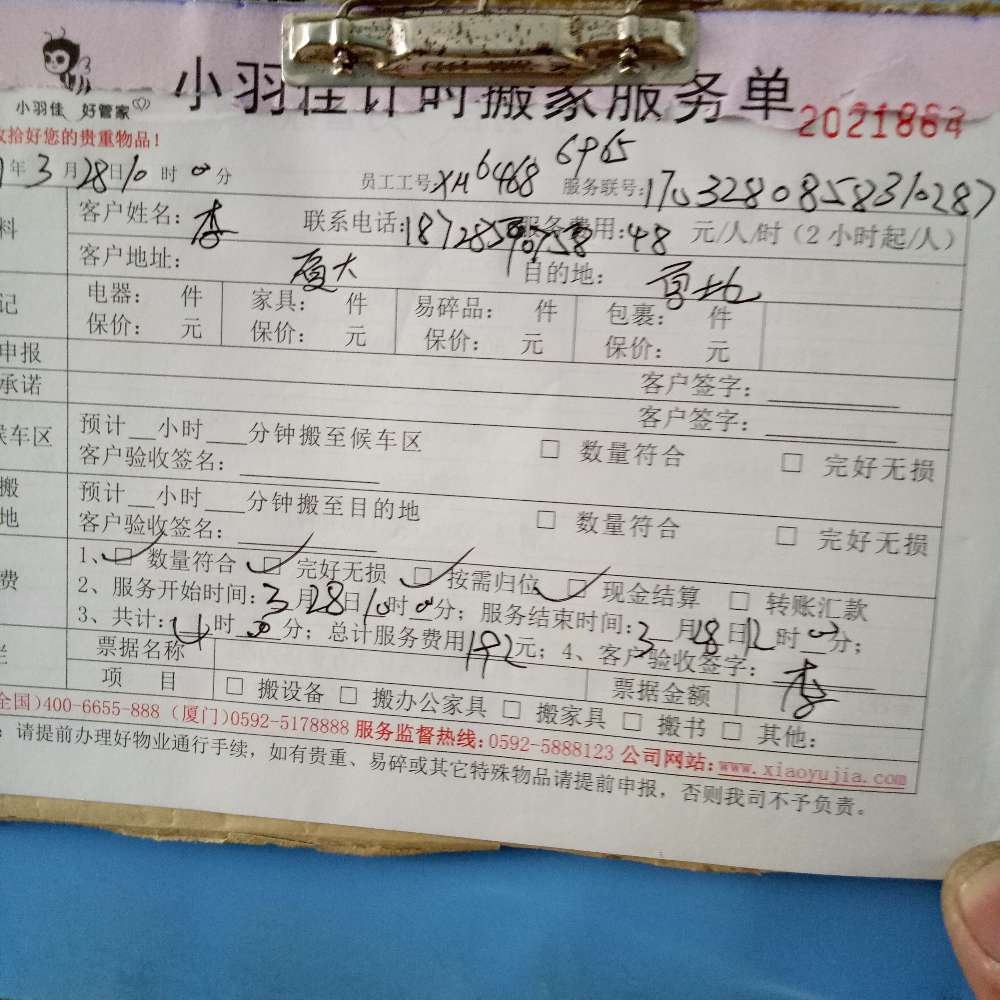 小羽佳计时搬家服务单
小羽佳 好管家
2021864
收拾好您的贵重物品！
年3月28日10时0分 员工工号XM6468 6965 服务联号:
料 客户姓名：李 联系电话: 服务费用:48 元/人/时（2小时起/人）
客户地址：厦大 目的地：
记 电器： 件 家具： 件 易碎品： 件 包裹： 件
保价： 元 保价： 元 保价： 元 保价： 元
申报 客户签字：
承诺 客户签字：
候车区 预计__小时___分钟搬至候车区 □ 数量符合 □ 完好无损
客户验收签名：
搬 预计__小时___分钟搬至目的地 □ 数量符合 □ 完好无损
地 客户验收签名：
费 1、☑ 数量符合 ☑ 完好无损 ☑ 按需归位 ☑ 现金结算 □ 转账汇款
2、服务开始时间:3月28日10时0分；服务结束时间:3月28日12时0分；
3、共计:4时0分；总计服务费用192元；4、客户验收签字：李
票据名称 票据金额
项 目 □ 搬设备 □ 搬办公家具 □ 搬家具 □ 搬书 □ 其他:
全国)400-6655-888（厦门)0592-5178888 服务监督热线:0592-5888123 公司网站:www.xiaoyujia.com
：请提前办理好物业通行手续，如有贵重、易碎或其它特殊物品请提前申报，否则我司不予负责。